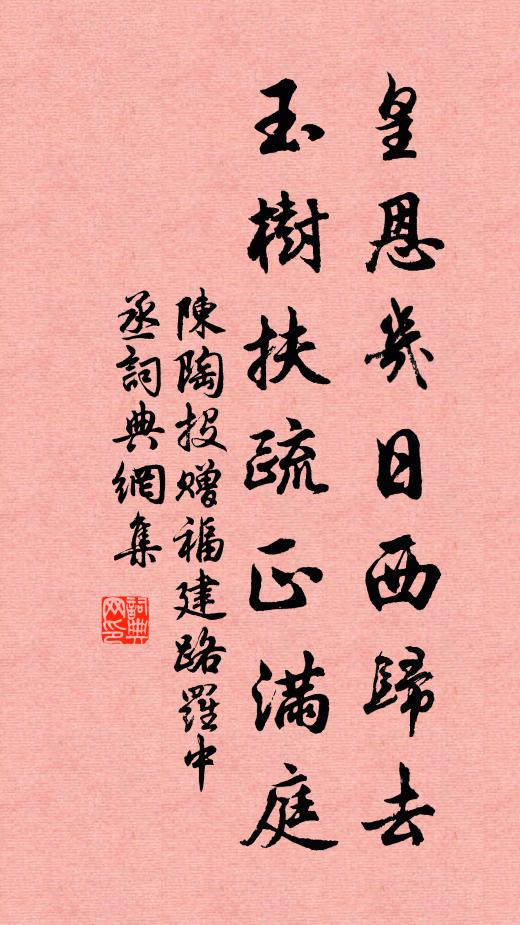 皇恩幾日西歸去
玉樹扶疏正滿庭
陳陶投贈福建路羅中
丞詞典網集
詞典網印